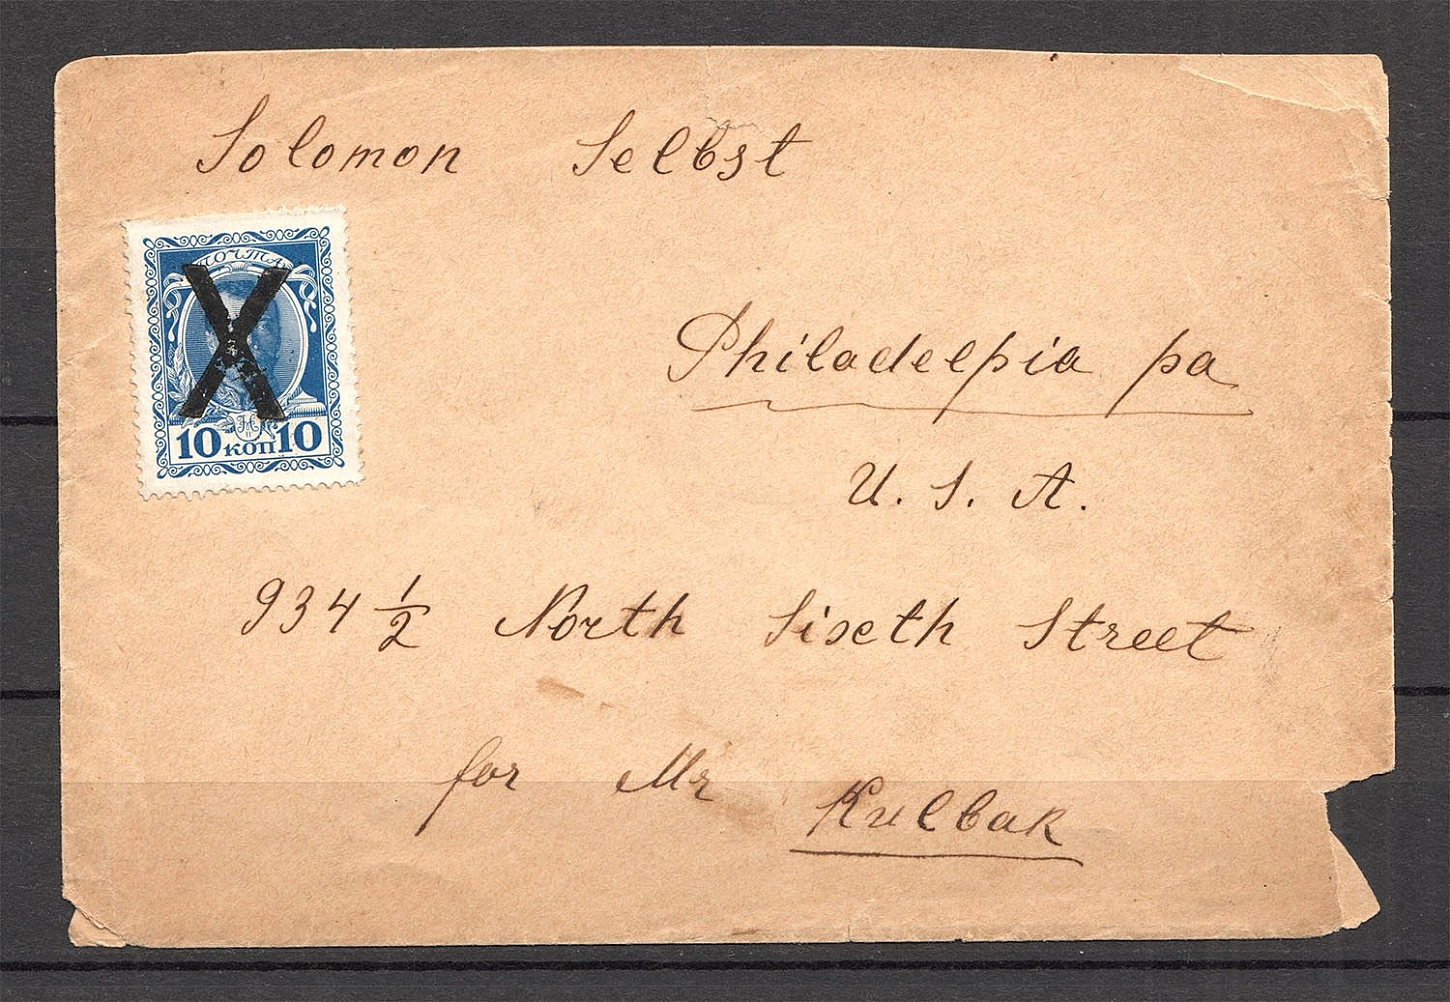 Solomon Selbst
ПОЧТА
10 коп 10
Philadelpia pa
U. S. A.
934 1/2 North Siseth Street
for Mr Kulbak